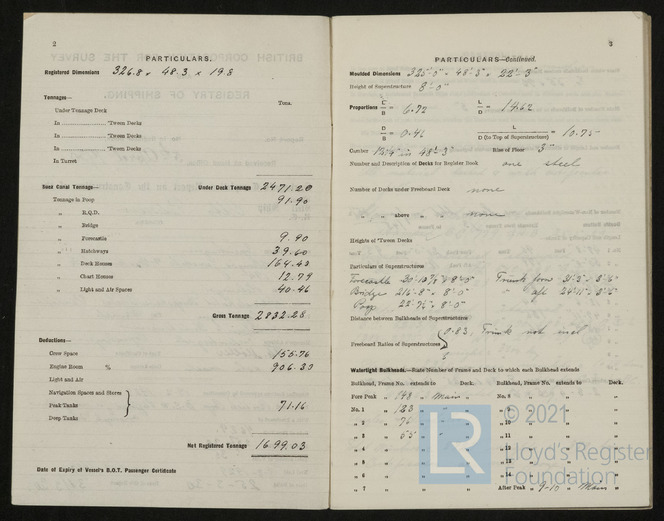 2
PARTICULARS.
Registered Dimensions 326.8 x 48.3 x 19.8
Tonnages— Tons.
Under Tonnage Deck
In ........ 'Tween Decks
In ........ 'Tween Decks
In ........ 'Tween Decks
In Turret
Suez Canal Tonnage— Under Deck Tonnage 2471.20
Tonnage in Poop 91.90
„ R.Q.D.
„ Bridge
„ Forecastle 9.90
„ Hatchways 39.60
„ Deck Houses 164.43
„ Chart Houses 12.79
„ Light and Air Spaces 40.46
Gross Tonnage 2832.28
Deductions—
Crew Space 155.76
Engine Room % 906.33
Light and Air
Navigation Spaces and Stores
Peak Tanks 71.16
Deep Tanks
Net Registered Tonnage 1699.03
Date of Expiry of Vessel's B.O.T. Passenger Certificate
3
PARTICULARS—Continued.
Moulded Dimensions 325'-0" x 48'-3" x 22'-3"
Height of Superstructure 8'-0"
Proportions L/B = 6.72 L/D = 14.62
D/B = 0.46 L/D (to Top of Superstructure) = 10.75
Camber 12 1/4" in 48'-3" Rise of Floor 3"
Number and Description of Decks for Register Book one steel
Number of Decks under Freeboard Deck none
„ „ above „ „ none
Heights of 'Tween Decks
Particulars of Superstructures
Forecastle 30'-10 7/8" x 8'-0" Trunk forw 31'-3" x 3'-6"
Bridge 216'-8" x 8'-0" „ aft 24'-11"
Poop 22'-7 1/2" x 8'-0"
Distance between Bulkheads of Superstructures
Freeboard Ratios of Superstructures 0.83, Trunk not incl
Watertight Bulkheads.—State Number of Frame and Deck to which each Bulkhead extends
Bulkhead, Frame No. extends to Deck. Bulkhead, Frame No. extends to Deck.
Fore Peak „ 148 „ Main „ No. 8 „ „
No. 1 „ 123 „ „ 9
„ 2 „ 76 „ „ 10
„ 3 „ 55 „ „ 11
„ 4 „ 12
„ 5 „ 13
„ 6 „ 14
„ 7 „ „ After Peak „ 9-10 „ Main „
LR
© 2021
Lloyd's Register
Foundation